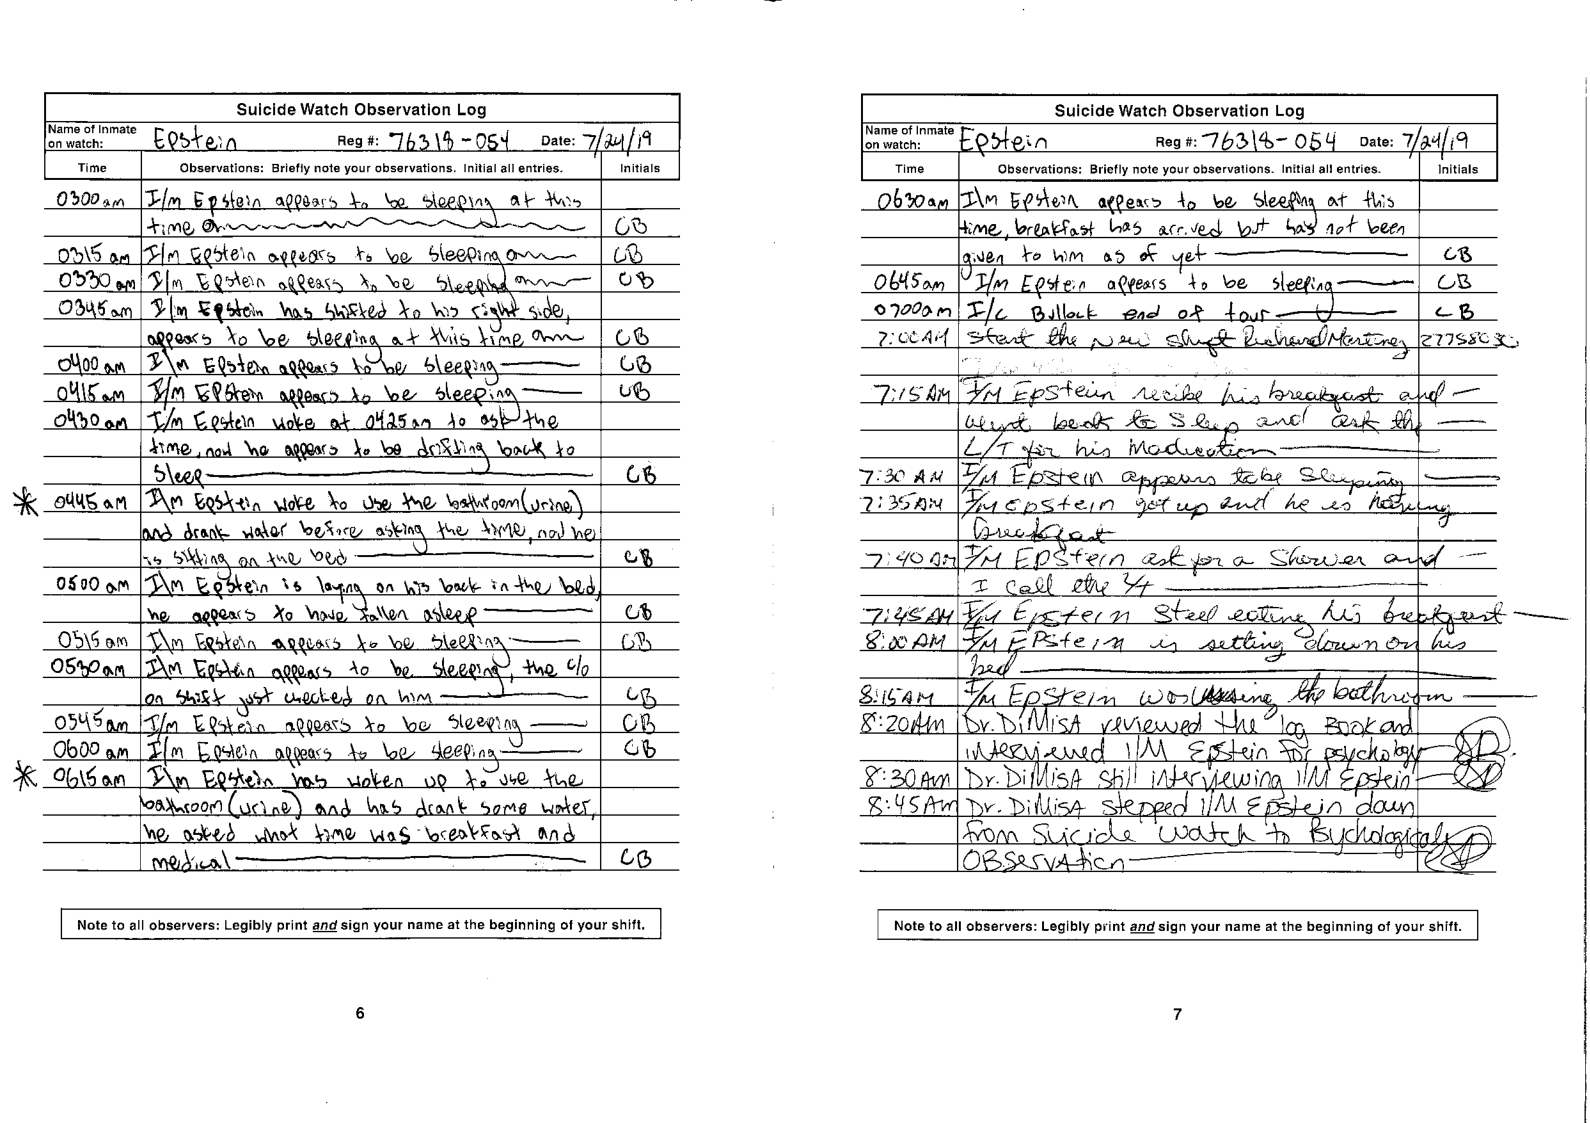 Suicide Watch Observation Log
Name of Inmate on watch: Epstein Reg #: 76318-054 Date: 7/24/19
Time Observations: Briefly note your observations. Initial all entries. Initials
0300am I/m Epstein appears to be sleeping at this
time CB
0315 am I/m Epstein appears to be sleeping CB
0330 am I/m Epstein appears to be sleeping CB
0345am I/m Epstein has shifted to his right side,
appears to be sleeping at this time CB
0400 am I\m Epstein appears to be sleeping CB
0415 am I/m Epstein appears to be sleeping CB
0430 am I/m Epstein woke at 0425am to ask the
time, now he appears to be drifting back to
sleep CB
* 0445 am I\m Epstein woke to use the bathroom (urine)
and drank water before asking the time, now he
is sitting on the bed CB
0500 am I\m Epstein is laying on his back in the bed,
he appears to have fallen asleep CB
0515 am I\m Epstein appears to be sleeping CB
0530am I\m Epstein appears to be sleeping, the c/o
on shift just checked on him CB
0545am I/m Epstein appears to be sleeping CB
0600 am I/m Epstein appears to be sleeping CB
* 0615 am I\m Epstein has woken up to use the
bathroom (urine) and has drank some water,
he asked what time was breakfast and
medical CB
Note to all observers: Legibly print and sign your name at the beginning of your shift.
6
Suicide Watch Observation Log
Name of Inmate on watch: Epstein Reg #: 76318-054 Date: 7/24/19
Time Observations: Briefly note your observations. Initial all entries. Initials
0630am I\m Epstein appears to be sleeping at this
time, breakfast has arrived but has not been
given to him as of yet CB
0645am I/m Epstein appears to be sleeping CB
0700am I/c Bullock end of tour CB
7:00AM Start the New Shift Richard Martinez
7:15 AM I/M EpStein recibe his breakfast and
went back to Sleep and ask the
L/T for his Madication
7:30 AM I/M Epstein appears to be sleeping
7:35AM I/M EpStein got up and he is
breakfast
7:40 AM I/M EPStein ask for a Shower and
I call the
7:45AM I/M EpStein Steel eating his breakfast
8:00AM I/M EPStein is setting down on his
bed
8:15AM I/M EpStein was using the bathroom
8:20AM Dr. DiMisA reviewed the log Book and
interviewed I/M Epstein for psychology
8:30Am Dr. DiMisA still interviewing I/M Epstein
8:45Am Dr. DiMisA stepped I/M Epstein down
from Suicide watch to Psychological
OBservAtion
Note to all observers: Legibly print and sign your name at the beginning of your shift.
7